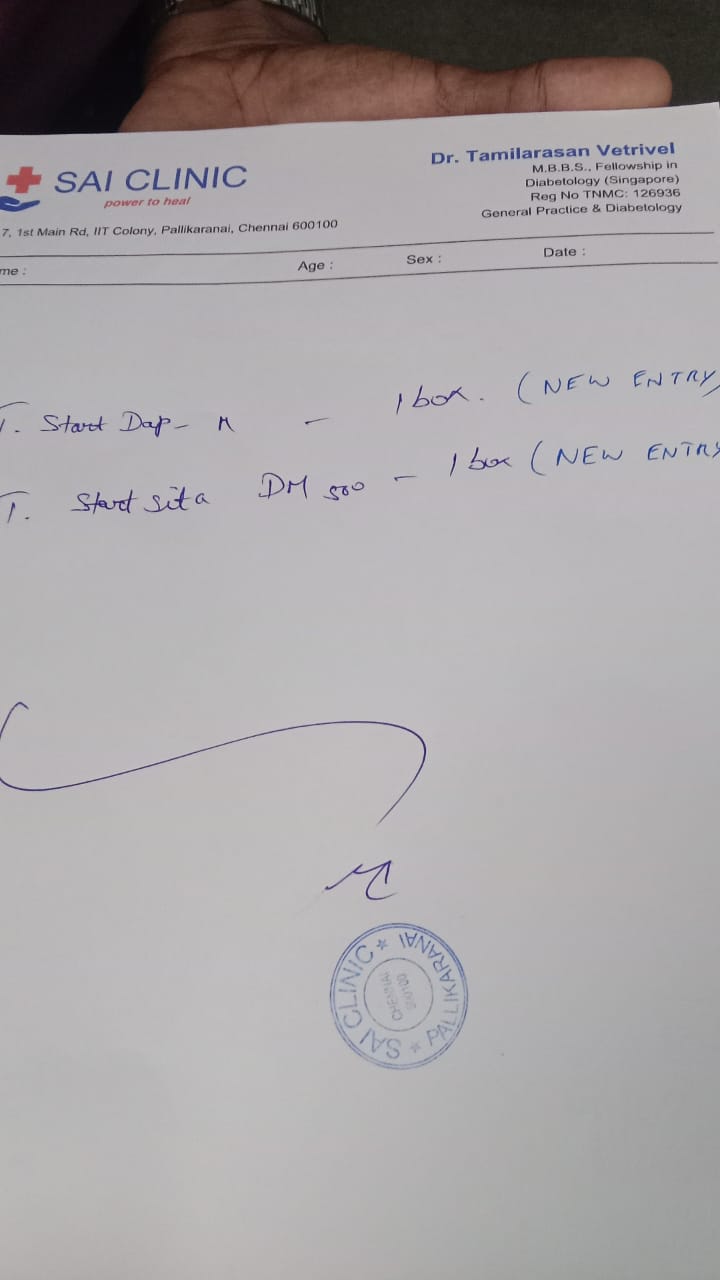 SAI CLINIC
power to heal
7, 1st Main Rd, IIT Colony, Pallikaranai, Chennai 600100
Dr. Tamilarasan Vetrivel
M.B.B.S., Fellowship in
Diabetology (Singapore)
Reg No TNMC: 126936
General Practice & Diabetology
me : Age : Sex : Date :
T. Start Dap - M - 1 box. (NEW ENTRY)
T. Start Sita DM 500 - 1 box (NEW ENTRY
SAI CLINIC * PALLIKARANAI *
CHENNAI
600100